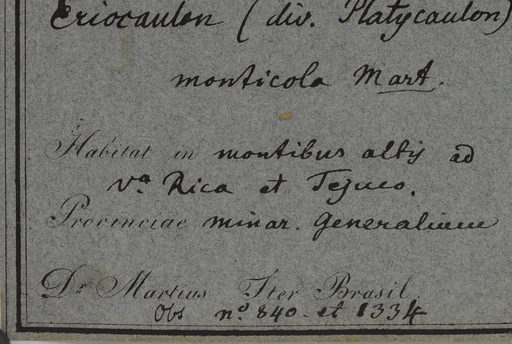 Eriocaulon (div. Platycaulon)
monticola Mart.
Habitat in montibus altis ad
Va Rica et Tejuco.
Provinciae minar. generalium
Dr Martius Iter Brasil
Obs no 840 et 1334